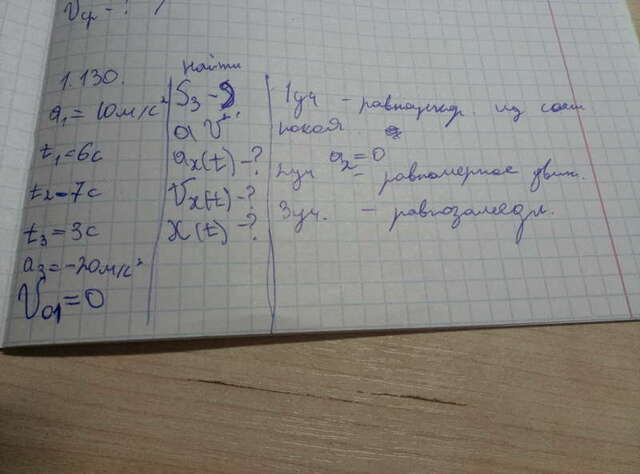 Vср - ?
1.130.
a₁ = 10 м/с²
t₁ = 6с
t₂ = 7с
t₃ = 3с
a₃ = -20 м/с²
V₀₁ = 0
Найти
S₃ - ?
aₓ(t) - ?
Vₓ(t) - ?
x(t) - ?
1уч - равноускор. из сост
покоя.
2уч a₂ = 0 - равномерное движ.
3уч. - равнозамедл.